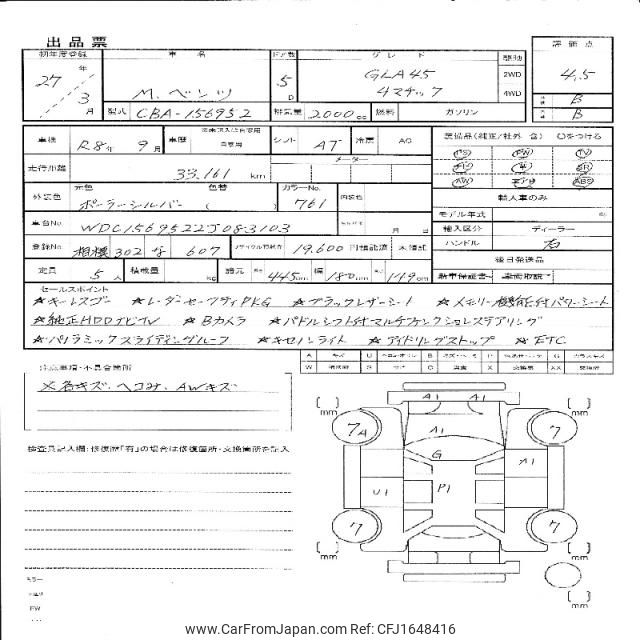 出品票
初年度登録 車名 ドア数 グレード 駆動 評価点
27年 3月 M.ベンツ 5D GLA45 4マチック 2WD 4WD 4.5
B
B
型式 CBA-156952 排気量 2000cc 燃料 ガソリン
車検 R8年 9月 車歴 自家用 シフト AT 冷房 AC 装備品(純正/社外 含) ○をつける
PS PW TV
AW ABS
走行距離 33,161 km メーター
輸入車のみ
外装色 元色 ポーラーシルバー 色替 ( ) カラーNo. 761 内装色
モデル年式
車台No. WDC1569522J083103 月 日 輸入区分 ディーラー
登録No. 相模 302 な 607 リサイクル預託金 19,600円 預託済 未預託 ハンドル 右
後日発送品
定員 5人 積載量 kg 諸元 長さ 445cm 幅 180cm 高さ 149cm 新車保証書 車両取説
セールスポイント
★キーレスゴー ★レーダーセーフティPKG ★ブラックレザーシート ★メモリー機能付パワーシート
★純正HDDナビTV ★Bカメラ ★パドルシフト付マルチファンクションステアリング
★パノラミックスライディングルーフ ★キセノンライト ★アイドリングストップ ★ETC
A キズ U B P G ガラスキズ
W S サビ C 腐食 X 交換要 XX 交換済
注意事項・不具合箇所
メ各キズ、ヘコみ、AWキズ
検査員記入欄:修復歴「有」の場合は修復箇所・交換箇所を記入
A1 A1
[ ]mm [ ]mm
7A A1 7
G
A1
U1 P1
7 7
[ ]mm [ ]mm
[ ]mm
www.CarFromJapan.com Ref: CFJ1648416